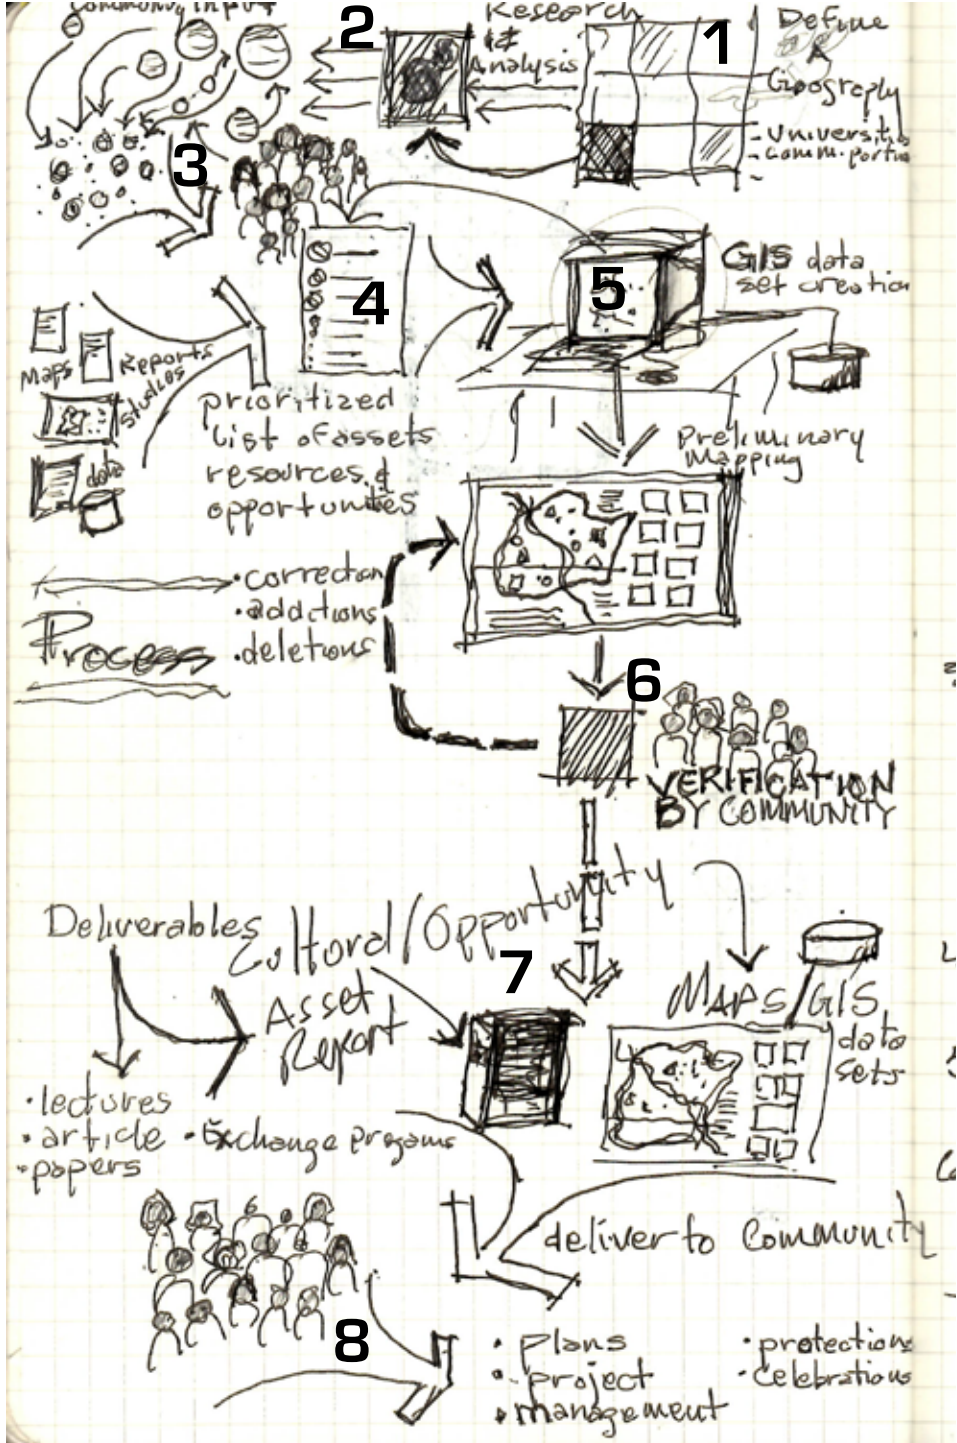 Community Input
2
Research
& Analysis
1
Define
A
Geography
- Universities
- comm. portin
3
4
5
GIS data
set creation
Maps
Reports
studies
data
prioritized
list of assets
resources &
opportunities
Preliminary
Mapping
Process
• correction
• additions
• deletions
6
VERIFICATION
BY COMMUNITY
Deliverables
Cultural/Opportunity
Asset
Report
7
MAPS/GIS
data
sets
• lectures
• article
• papers
• Exchange programs
deliver to Community
8
• Plans
• project
• management
• protections
• celebrations